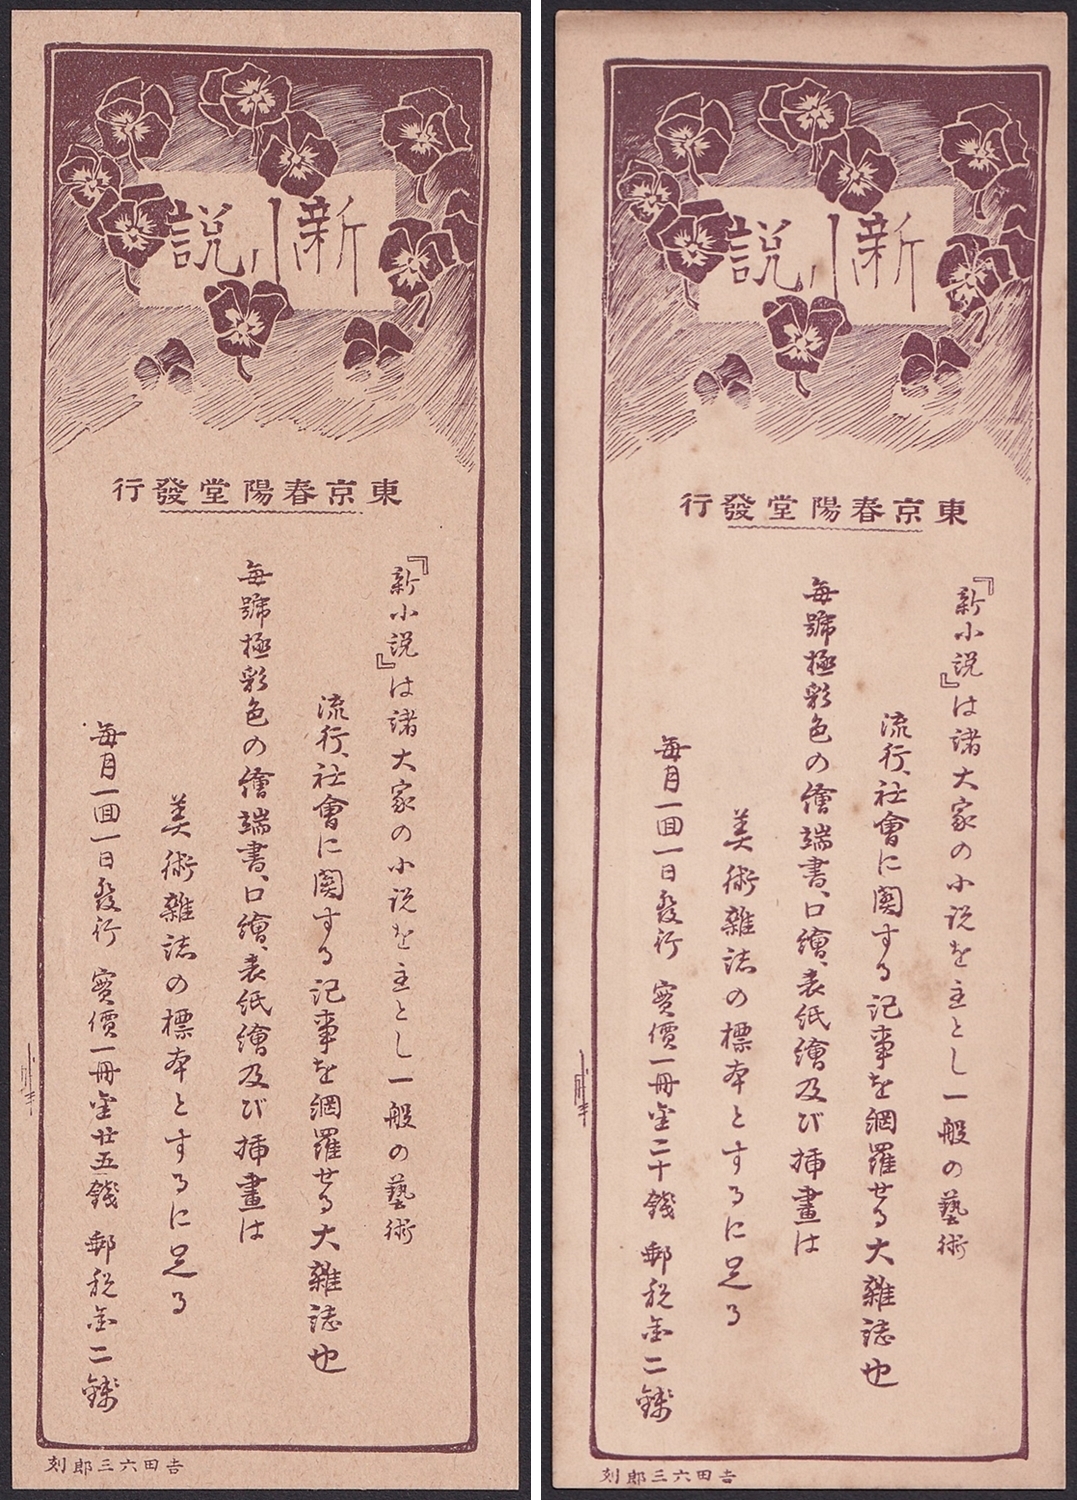 新小説
東京春陽堂發行
『新小説』は諸大家の小説を主とし一般の藝術
流行、社會に関する記事を網羅せる大雜誌也
毎號極彩色の繪端書、口繪、表紙繪及び挿畫は
美術雜誌の標本とするに足る
毎月一回一日發行 實價一冊金廿五錢 郵税金二錢
吉田六三郎刻
新小説
東京春陽堂發行
『新小説』は諸大家の小説を主とし一般の藝術
流行、社會に関する記事を網羅せる大雜誌也
毎號極彩色の繪端書、口繪、表紙繪及び挿畫は
美術雜誌の標本とするに足る
毎月一回一日發行 實價一冊金二十錢 郵税金二錢
吉田六三郎刻